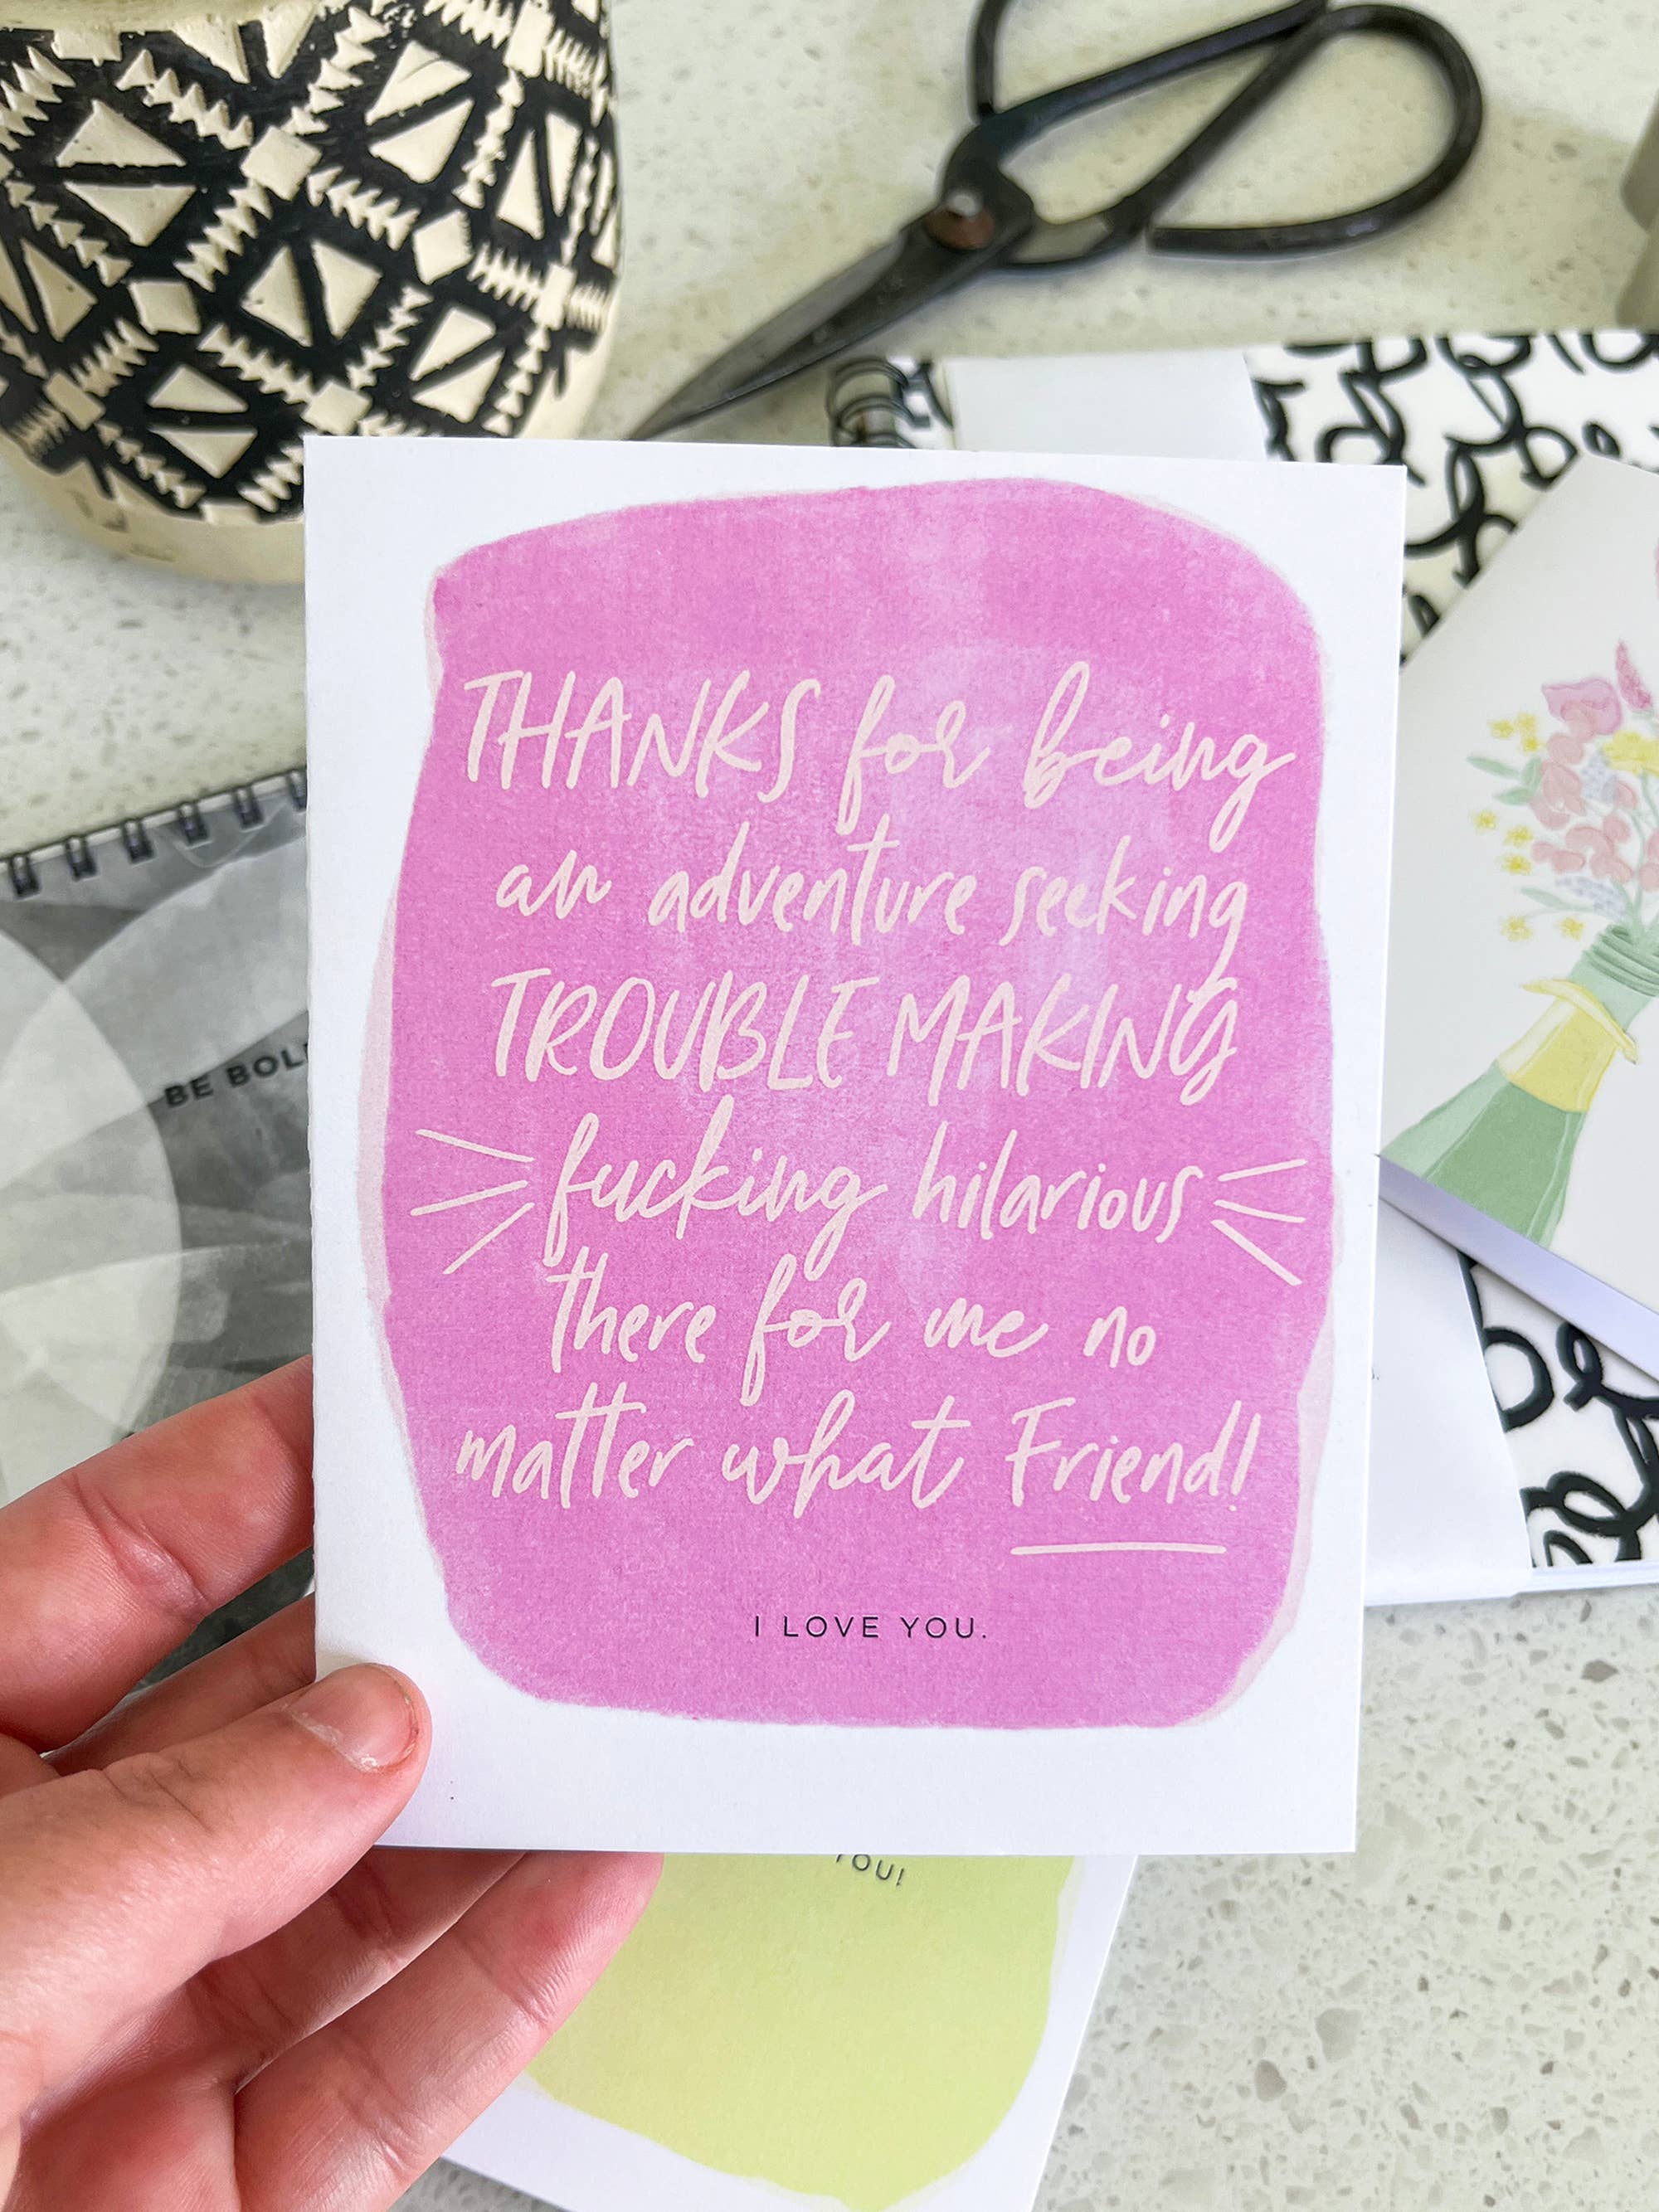 THANKS for being
an adventure seeking
TROUBLE MAKING
fucking hilarious
there for me no
matter what Friend!
I LOVE YOU.
BE BOL
YOU!